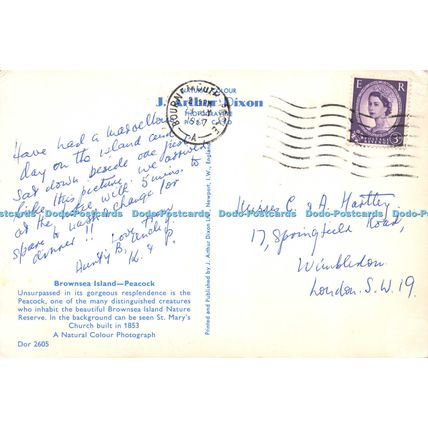 NATURAL COLOUR
J. Arthur Dixon
PHOTOGRAVURE
POST CARD
BOURNEMOUTH
1967
E R
3D
Have had a marvellous
day on the island and
Sat down beside one just
like this picture. We arrived
at the with 5 mins. to
spare to wash & change for
dinner!! Love from
Aunty B,
Misses C & A Hartley
17, Springfield Road,
Wimbledon.
London. S.W. 19.
Dodo-Postcards Dodo-Postcards Dodo-Postcards Dodo-Postcards Dodo-Postcards
Brownsea Island—Peacock
Unsurpassed in its gorgeous resplendence is the
Peacock, one of the many distinguished creatures
who inhabit the beautiful Brownsea Island Nature
Reserve. In the background can be seen St. Mary's
Church built in 1853
A Natural Colour Photograph
Dor 2605
Printed and Published by J. Arthur Dixon Ltd., Newport, I.W., England